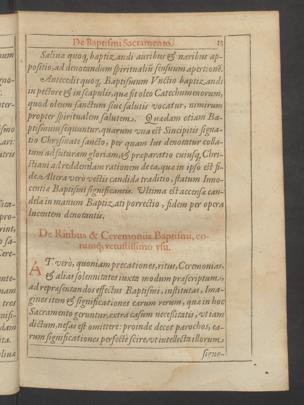 De Baptismi Sacramento. 12
Saliua quoq; baptizandi auribus & naribus ap-
positio, ad denotandum spiritualiū sensuum apertionē.
Antecedit quoq; Baptismum Vnctio baptizandi
in pectore & in scapulis, quæ fit oleo Catechumenorum,
quod oleum sanctum siue salutis vocatur, nimirum
propter spiritualem salutem. Quædam etiam Ba-
ptismum sequuntur, quarum vna est Sincipitis signa-
tio Chrismate sancto, per quam iure denotatur colla-
tum ad futuram gloriam, & præparatio cuiusq; Chri-
stiani ad reddendam rationem de ea, quæ in ipso est fi-
de. Altera verò vestis candida traditio, statum Inno-
centiæ Baptismi significantis. Vltima est accensæ can-
delæ in manum Baptizati porrectio, fidem per opera
lucentem denotantis.
De Ritibus & Ceremoniis Baptismi, eo-
rumq; vetustissimo vsu.
AT verò, quoniam precationes, ritus, Ceremoniæ,
& aliæ solemnitates iuxta modum præscriptum,
ad repræsentandos effectus Baptismi, institutæ, Ima-
gines item & significationes earum rerum, quæ in hoc
Sacramento geruntur, extra casum necessitatis, vt iam
dictum, nefas est omitteri: proinde decet parochos, ea-
rum significationes perfectè scire, vt intellecta illorum
signe-